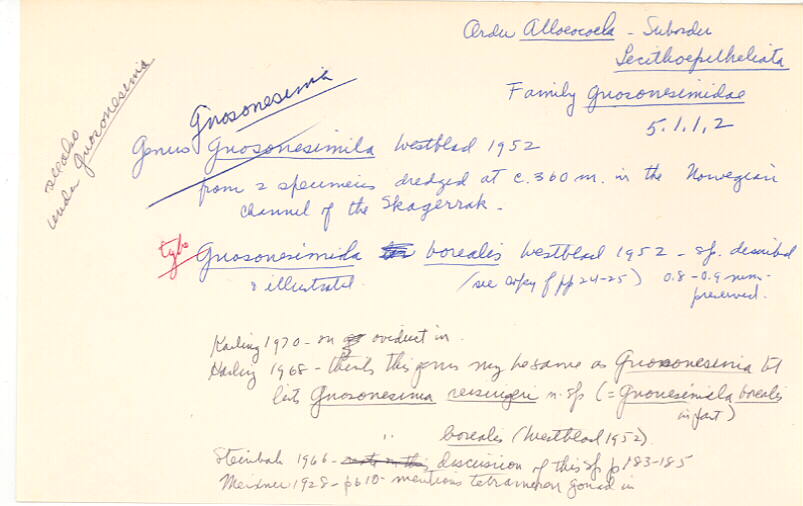 Order Alloeocoela - Suborder
Lecithoepitheliata
Family Gnosonesimidae
5.1.1.2
see also
under Gnosonesimia
Gnosonesimia
Genus Gnosonesimila Westblad 1952
from 2 specimens dredged at c. 360 m. in the Norwegian
channel of the Skagerrak.
Gnosonesimida borealis Westblad 1952 - sp. described
& illustrated (see copy of pp 24-25) 0.8-0.9 mm.
preserved.
Karling 1970 - on oviduct in.
Karling 1968 - thinks this genus may be same as Gnosonesimia
lists Gnosonesima reisingeri n.sp (= Gnosonesimila borealis
in part)
" borealis (Westblad 1952).
Steinböck 1966 - discussion of this sp p 183-185
Meixner 1928 - p610 - mentions gonad in